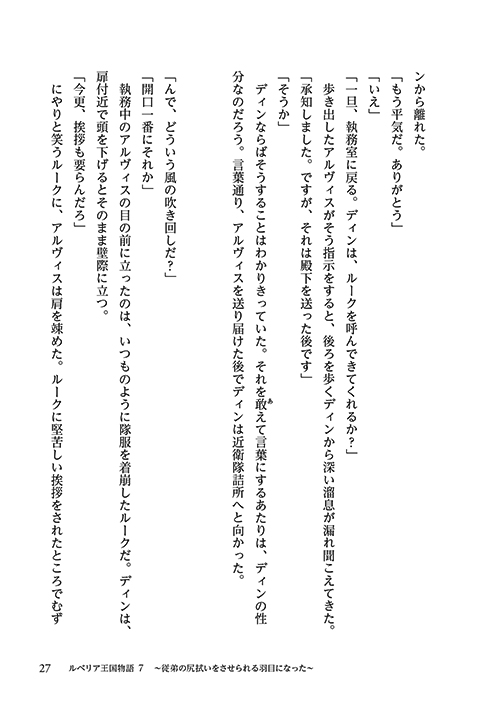 ンから離れた。
「もう平気だ。ありがとう」
「いえ」
「一旦、執務室に戻る。ディンは、ルークを呼んできてくれるか？」
歩き出したアルヴィスがそう指示をすると、後ろを歩くディンから深い溜息が漏れ聞こえてきた。
「承知しました。ですが、それは殿下を送った後です」
「そうか」
ディンならばそうすることはわかりきっていた。それを敢えて言葉にするあたりは、ディンの性
分なのだろう。言葉通り、アルヴィスを送り届けた後でディンは近衛隊詰所へと向かった。
「んで、どういう風の吹き回しだ？」
「開口一番にそれか」
執務中のアルヴィスの目の前に立ったのは、いつものように隊服を着崩したルークだ。ディンは、
扉付近で頭を下げるとそのまま壁際に立つ。
「今更、挨拶も要らんだろ」
にやりと笑うルークに、アルヴィスは肩を竦めた。ルークに堅苦しい挨拶をされたところでむず
27 ルベリア王国物語 7 ～従弟の尻拭いをさせられる羽目になった～